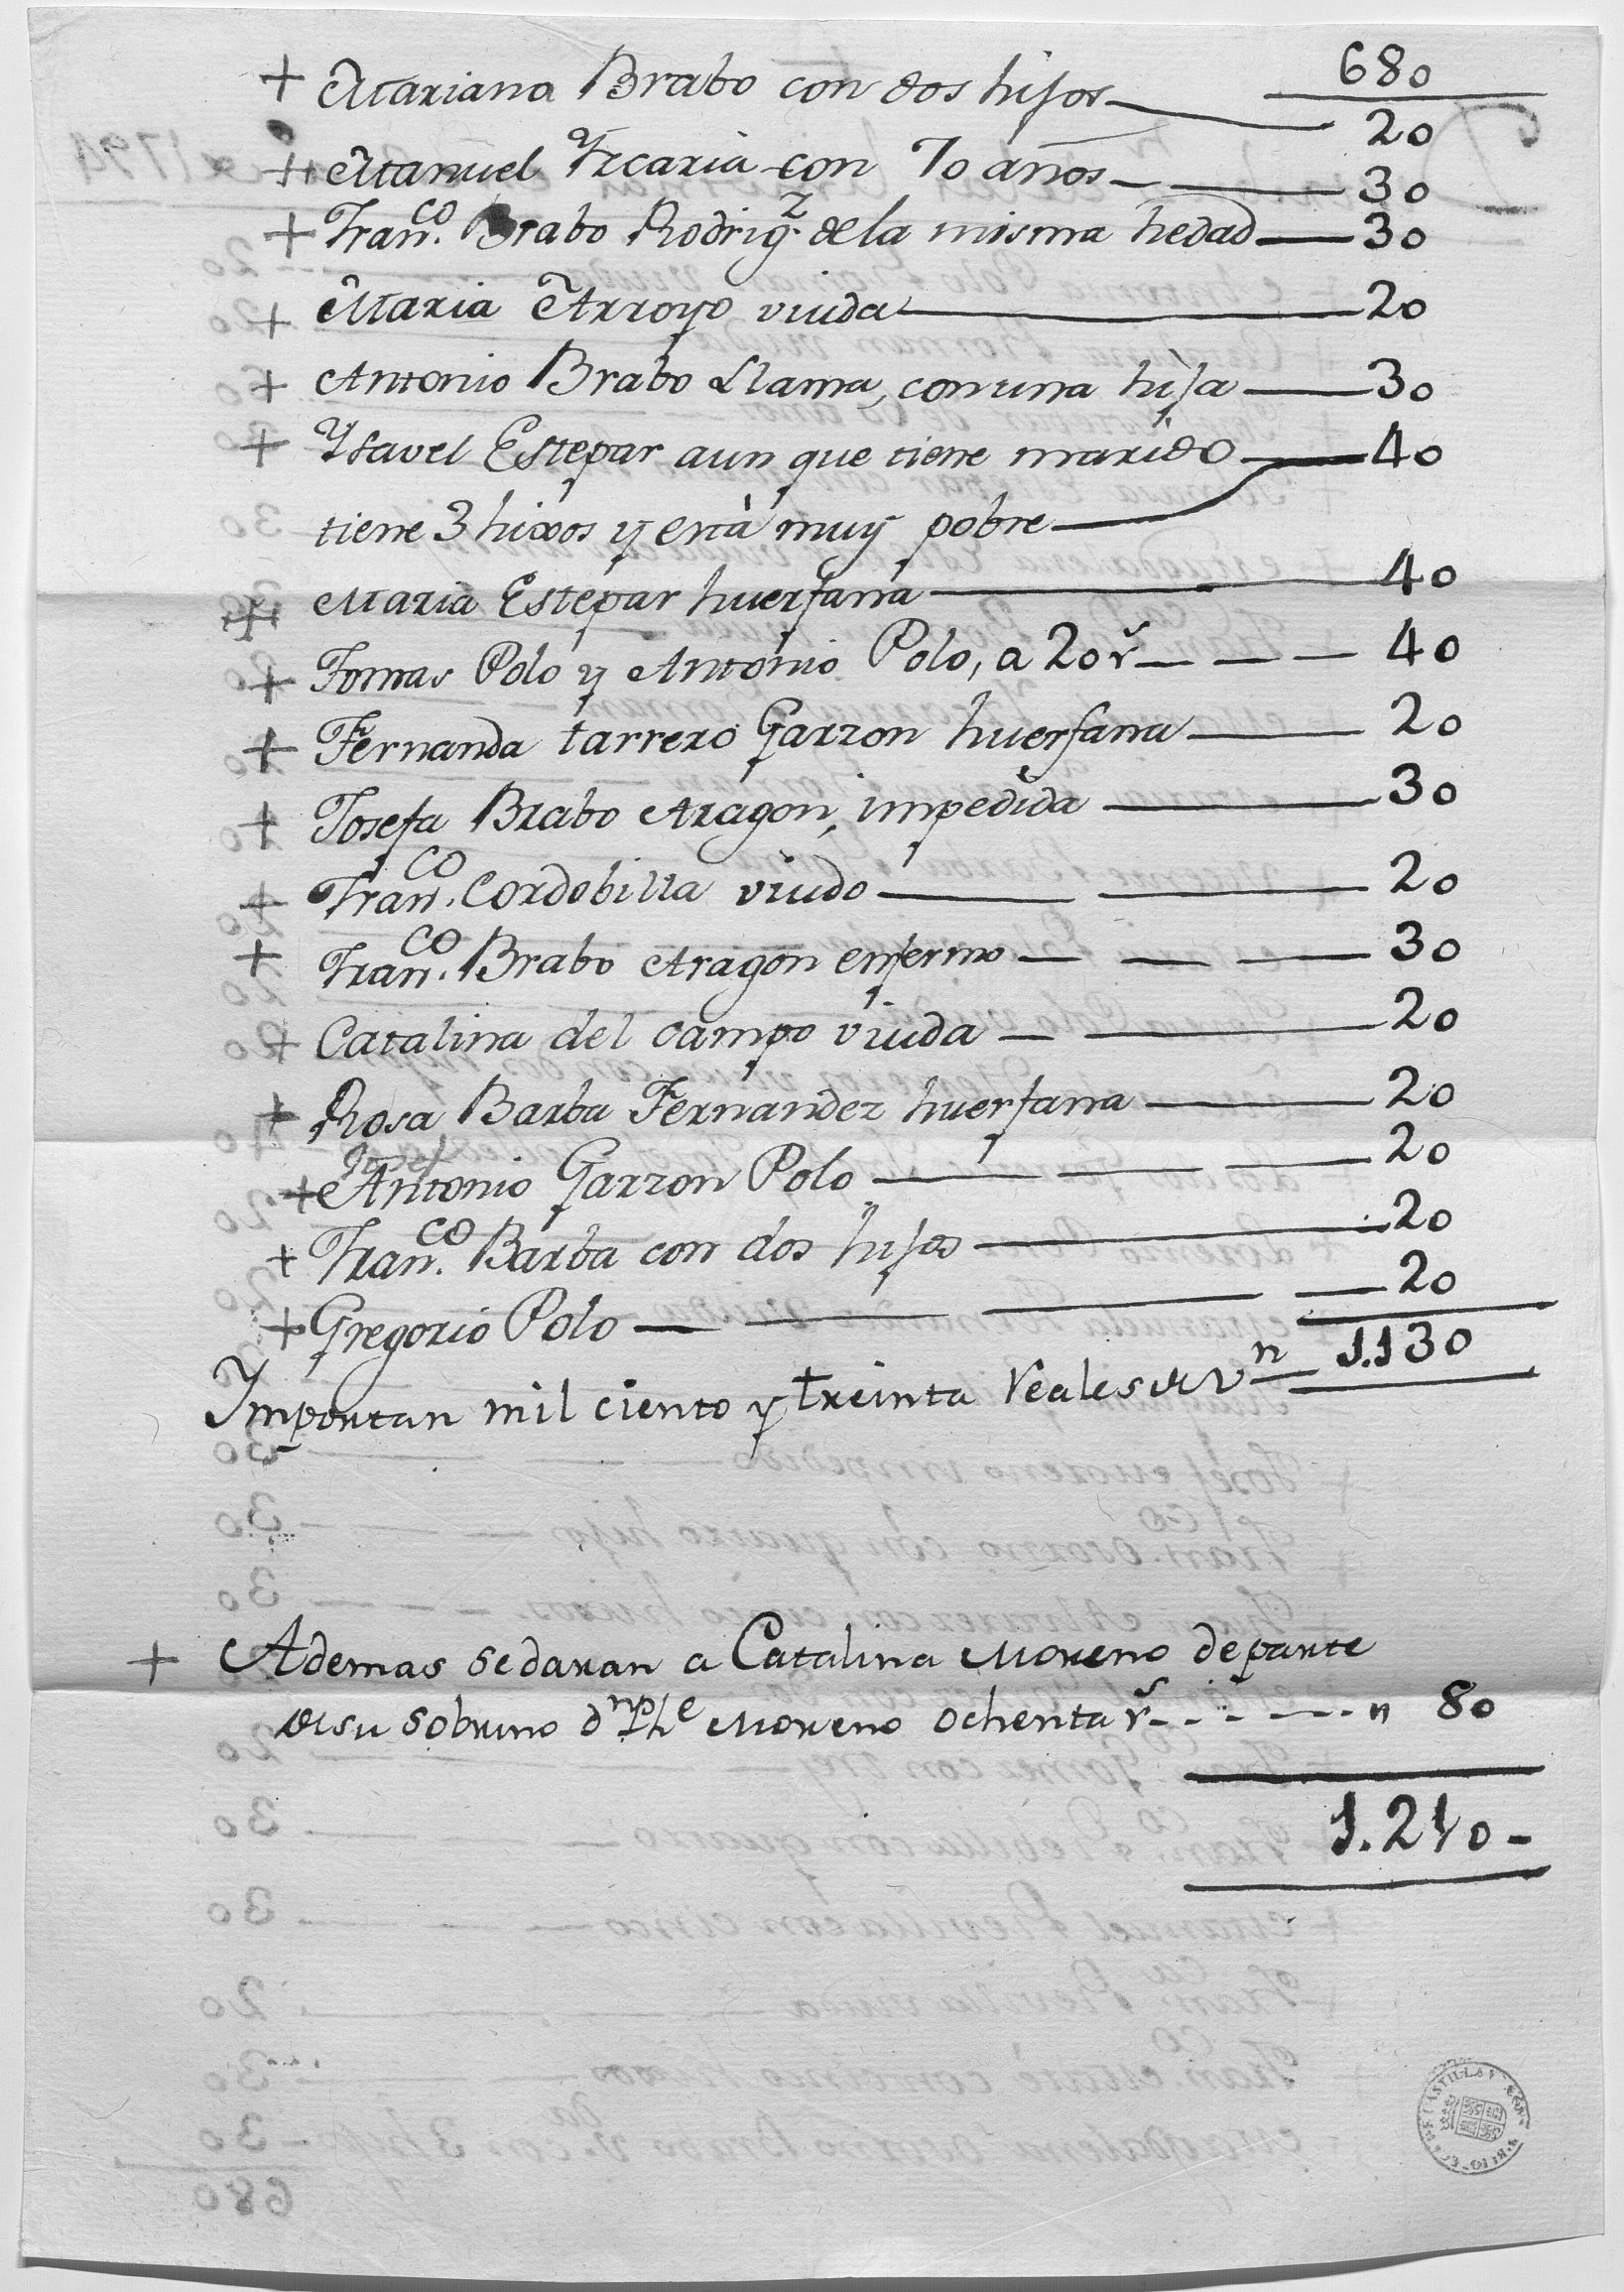 680
+ Mariana Brabo con dos hijos 20
+ Manuel Ycaria con 70 años 30
+ Fran.co Brabo Rodrig.z de la misma hedad 30
+ Maria Arroyo viuda 20
+ Antonio Brabo Llama, con una hija 30
+ Ysavel Estepar aun que tiene marido 40
tiene 3 hixos y está muy pobre
+ Maria Estepar huerfana 40
+ Tomas Polo y Antonio Polo, a 20 r.s 40
+ Fernanda tarrero Garzon huerfana 20
+ Josefa Brabo Aragon, impedida 30
+ Fran.co Cordobilla viudo 20
+ Fran.co Brabo Aragon enfermo 30
+ Catalina del campo viuda 20
+ Rosa Barba Fernandez huerfana 20
+ Antonio Garzon Polo 20
+ Fran.co Barba con dos hijos 20
+ Gregorio Polo 20
Importan mil ciento y treinta reales de v.n 1.130
+ Ademas se daran a Catalina Moreno de parte
de su sobrino d.n Ph.e Moreno ochenta r.s 80
1.210